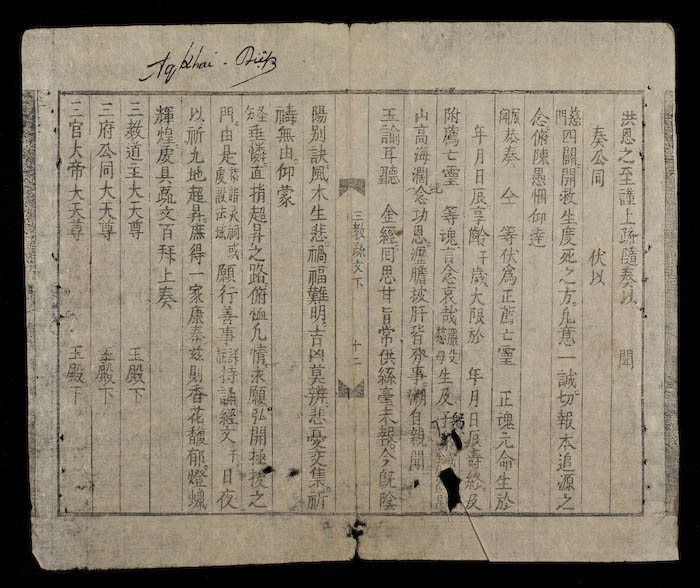 洪恩之至謹上疏隨奏以聞
奏公同伏以
慈門四闢開救生度死之方凡意一誠切報本追源之
念俯陳愚悃仰達
恭奏仝等伏爲正薦亡靈正魂元命生於
年月日辰享齡干歲大限於年月日辰壽終及
附薦亡靈此等魂言念哀哉嚴父慈母生及子
山高海濶念功恩瀝膽披肝皆來事溯自親聞
玉諭耳聽金經囘思甘旨常供絲毫未報今旣陰
三教疏文下十二
陽別訣風木生悲禍福難明吉凶莫辨悲憂交集祈
禱無由仰蒙
垂憐直指超昇之路俯恤凡情求願弘開極援之
門由是虔詣灵祠或虔設法壇願行善事詳註持誦經文干日夜
以祈九地超昇庶得一家康泰茲則香花馥郁燈蠟
輝煌慶具疏文百拜上奏
三教道主大天尊玉殿下
三府公同大天尊玉殿下
三官大帝大天尊玉殿下
Ng Khai - Diệp